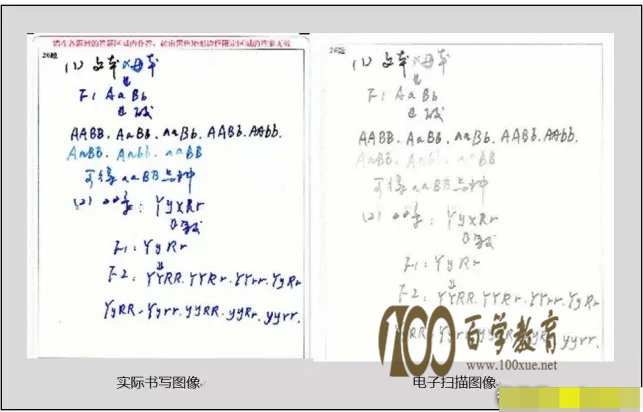 请在各题目的答题区域内作答，超出黑色矩形边框限定区域的答案无效
26题
(1) 父本×母本
F1 AaBb
AABB. AaBb. aaBb. AABb. AAbb.
AaBB. Aabb. aaBB
可得aaBB品种
(2) : YyXRr
F1: YyRr
F2: YYRR. YYRr. YYrr. YyRr
YyRR. Yyrr. yyRR. yyRr. yyrr.
实际书写图像
26题
(1) 父本×母本
F1 AaBb
AABB. AaBb. aaBb. AABb. AAbb.
AaBB. Aabb. aaBB
可得aaBB品种
(2) : YyXRr
F1: YyRr
F2: YYRR. YYRr. YYrr. YyRr
YyRR. Yyrr. yyrr.
100百学教育
www.100xue.net
电子扫描图像